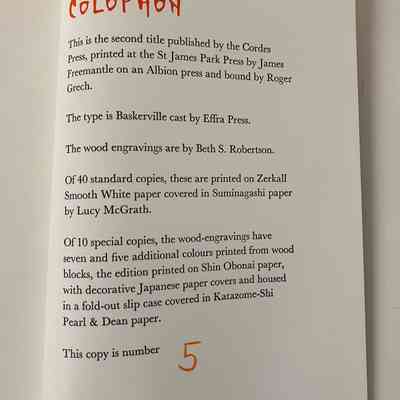 COLOPHON
This is the second title published by the Cordes
Press, printed at the St James Park Press by James
Freemantle on an Albion press and bound by Roger
Grech.
The type is Baskerville cast by Effra Press.
The wood engravings are by Beth S. Robertson.
Of 40 standard copies, these are printed on Zerkall
Smooth White paper covered in Suminagashi paper
by Lucy McGrath.
Of 10 special copies, the wood-engravings have
seven and five additional colours printed from wood
blocks, the edition printed on Shin Obonai paper,
with decorative Japanese paper covers and housed
in a fold-out slip case covered in Katazome-Shi
Pearl & Dean paper.
This copy is number 5